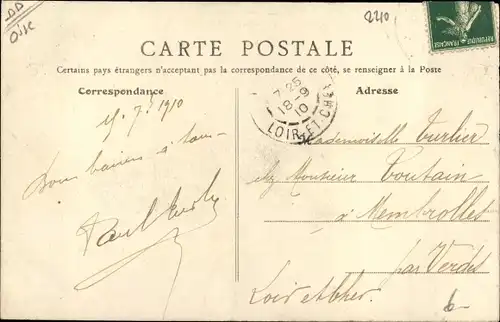 Oise
2210
CARTE POSTALE
Certains pays étrangers n'acceptant pas la correspondance de ce côté, se renseigner à la Poste
Correspondance
Adresse
15. 7. 1910
7 25
18 - 9
10
LOIR-ET-CHER
Bons baisers à tous
Paul
Mademoiselle Turlier
chez Monsieur Voutain
à Membrolles
par Verdes
Loir et Cher
6